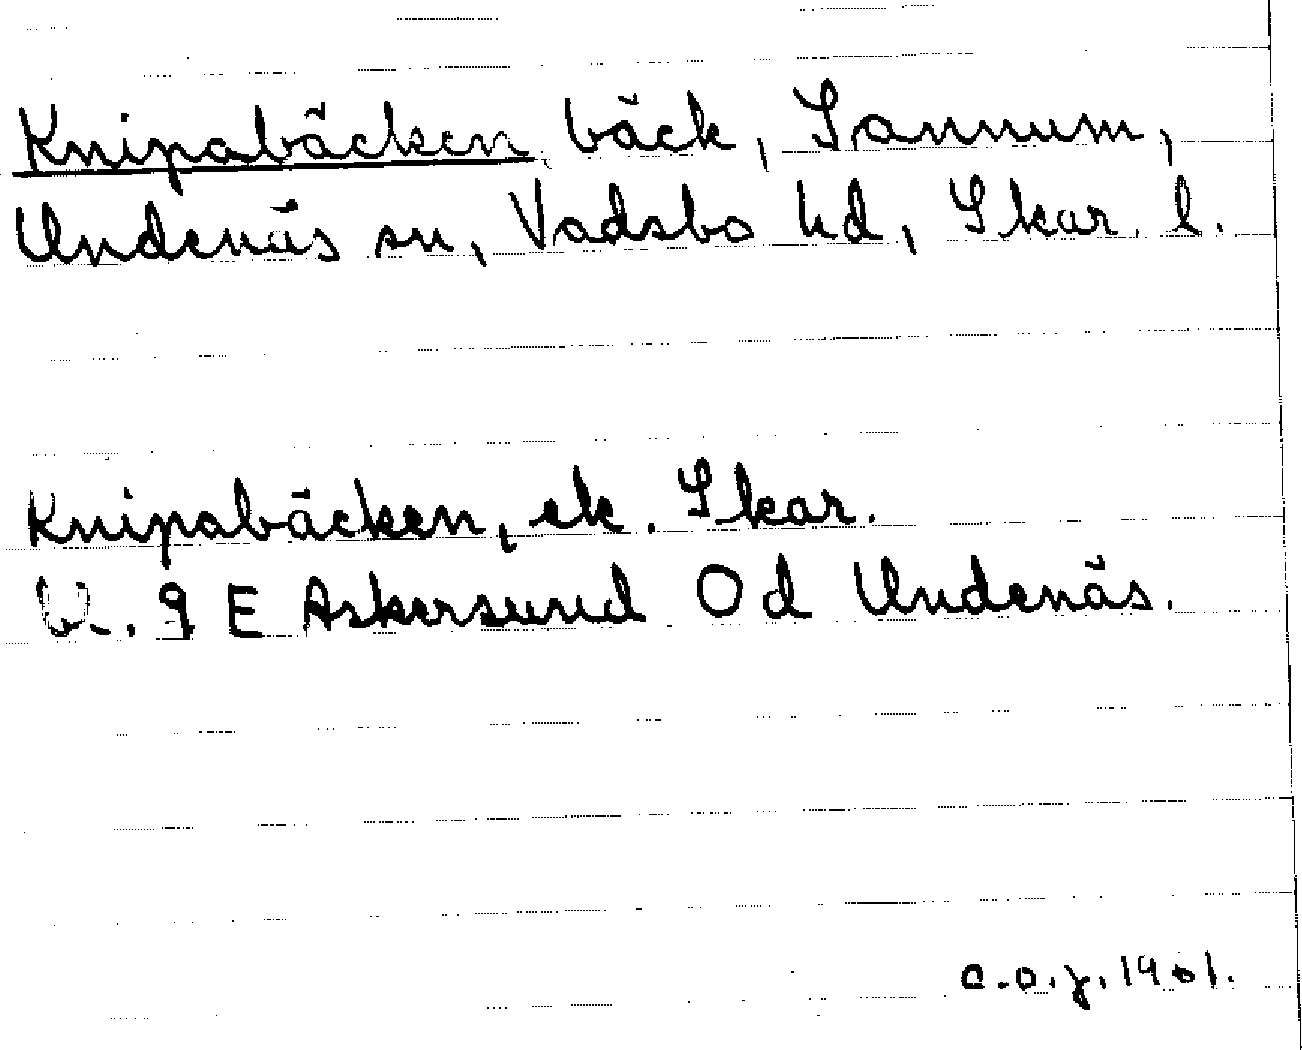 Knipabäcken, bäck, Sannum,
Undenäs sn, Vadsbo hd, Skar. l.
Knipabäcken, ek. Skar.
bl. 9 E Askersund Od Undenäs.
c.o.j. 1961.